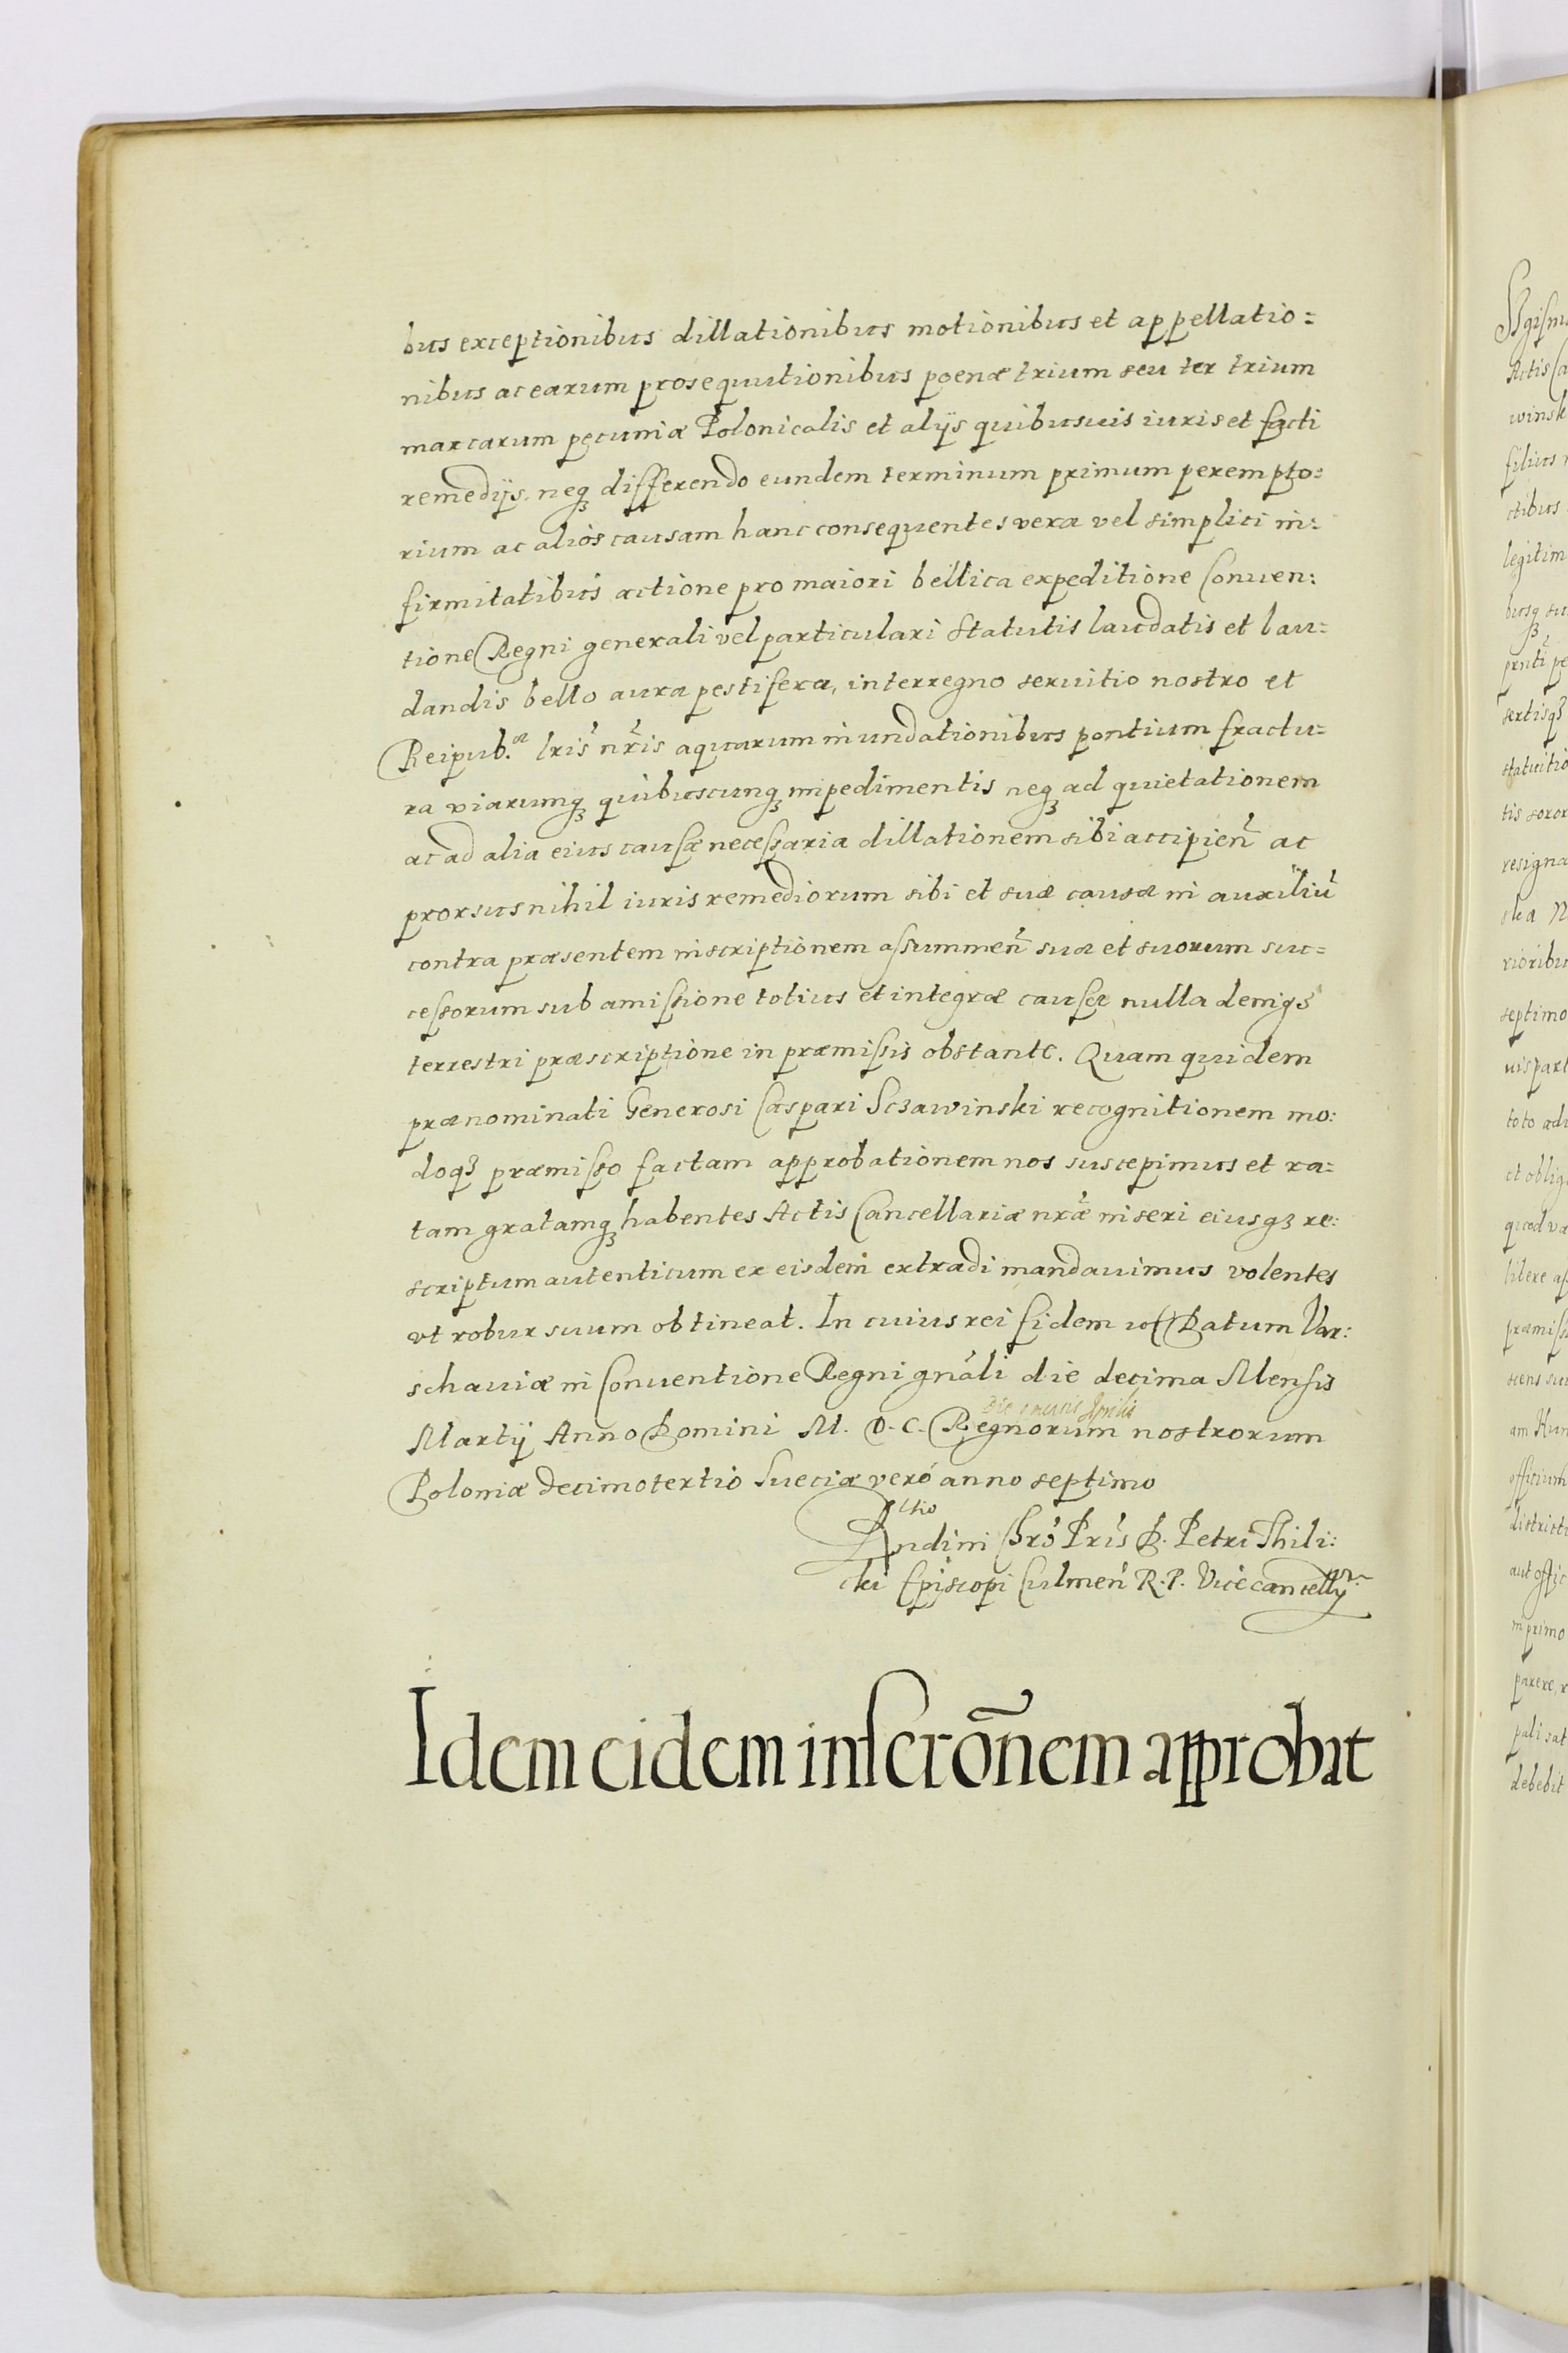 bus exceptionibus dillationibus motionibus et appellatio=
nibus ac earum prosequutionibus poenæ trium seu ter trium
marcarum pecuniæ Polonicalis et alijs quibusuis iuris et facti
remedijs, neqꝫ differendo eundem terminum primum perempto=
rium ac alios causam hanc consequentes vera vel simplici in=
firmitatibus actione pro maiori bellica expeditione Conuen:
tione Regni generali vel particulari statutis laudatis et lau=
dandis bello aura pestifera, interregno seruitio nostro et
Reipub.æ lris̃ nr̃is aquarum inundationibus pontium fractu=
ra viarumqꝫ quibuscunqꝫ impedimentis neqꝫ ad quietationem
ac ad alia eius causæ necessaria dillationem sibi accipien̄ ac
prorsus nihil iuris remediorum sibi et suæ causæ in auxiliū
contra præsentem inscriptionem assummen̄ sua et suorum suc=
cessorum sub amissione totius et integræ causæ nulla deniqꝫ
terrestri præscriptione in præmissis obstante. Quam quidem
prænominati Generosi Caspari Sczawinski recognitionem mo:
doqꝫ præmisso factam approbationem nos suscepimus et ra=
tam gratamqꝫ habentes Actis Cancellariæ nr̃æ inseri eiusqꝫ re:
scriptum autenticum ex eisdem extradi mandauimus volentes
vt robur suum obtineat. In cuius rei fidem Datum Var:
schauiæ in Conuentione Regni gn̄ali die decima Mensis
Die mensis Aprilis
Martij Anno Domini M. D. C. Regnorum nostrorum
Poloniæ decimotertio Sueciæ veró anno septimo
ctio
Rndimi Chrō Pris̃ D. Petri Thili:
cki Episcopi Culmen̄ R. P. Vicecancellꝫ
Idem eidem inscrōnem approbat
Actis
winsk
filius
ctibus
legitim
busqꝫ su
sertisqꝫ
statuitio
tis soror
resigna
ska N
rioribu
septimo
uis part
toto adu
et oblig
quod va
libere
præmiss
am Hun
officium
districti
aut offic
in primo
parere, r
pali sat
debebit